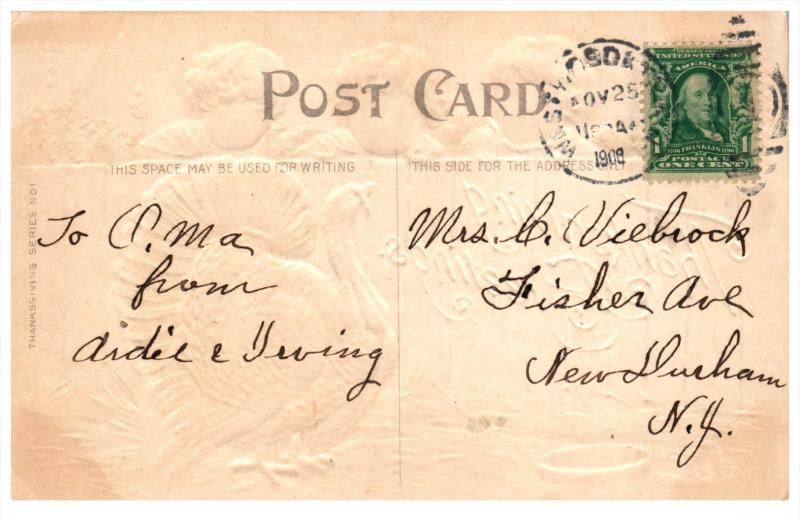 POST CARD
THIS SPACE MAY BE USED FOR WRITING
THIS SIDE FOR THE ADDRESS ONLY
THANKSGIVING SERIES NO1
To O. Ma
from
Ardie & Irving
Mrs. C. Viebrock
Fisher Ave
New Durham
N.J.
NOV 25
1908
SERIES 1902
UNITED STATES OF
AMERICA
FRANKLIN
1 POSTAGE 1
ONE CENT